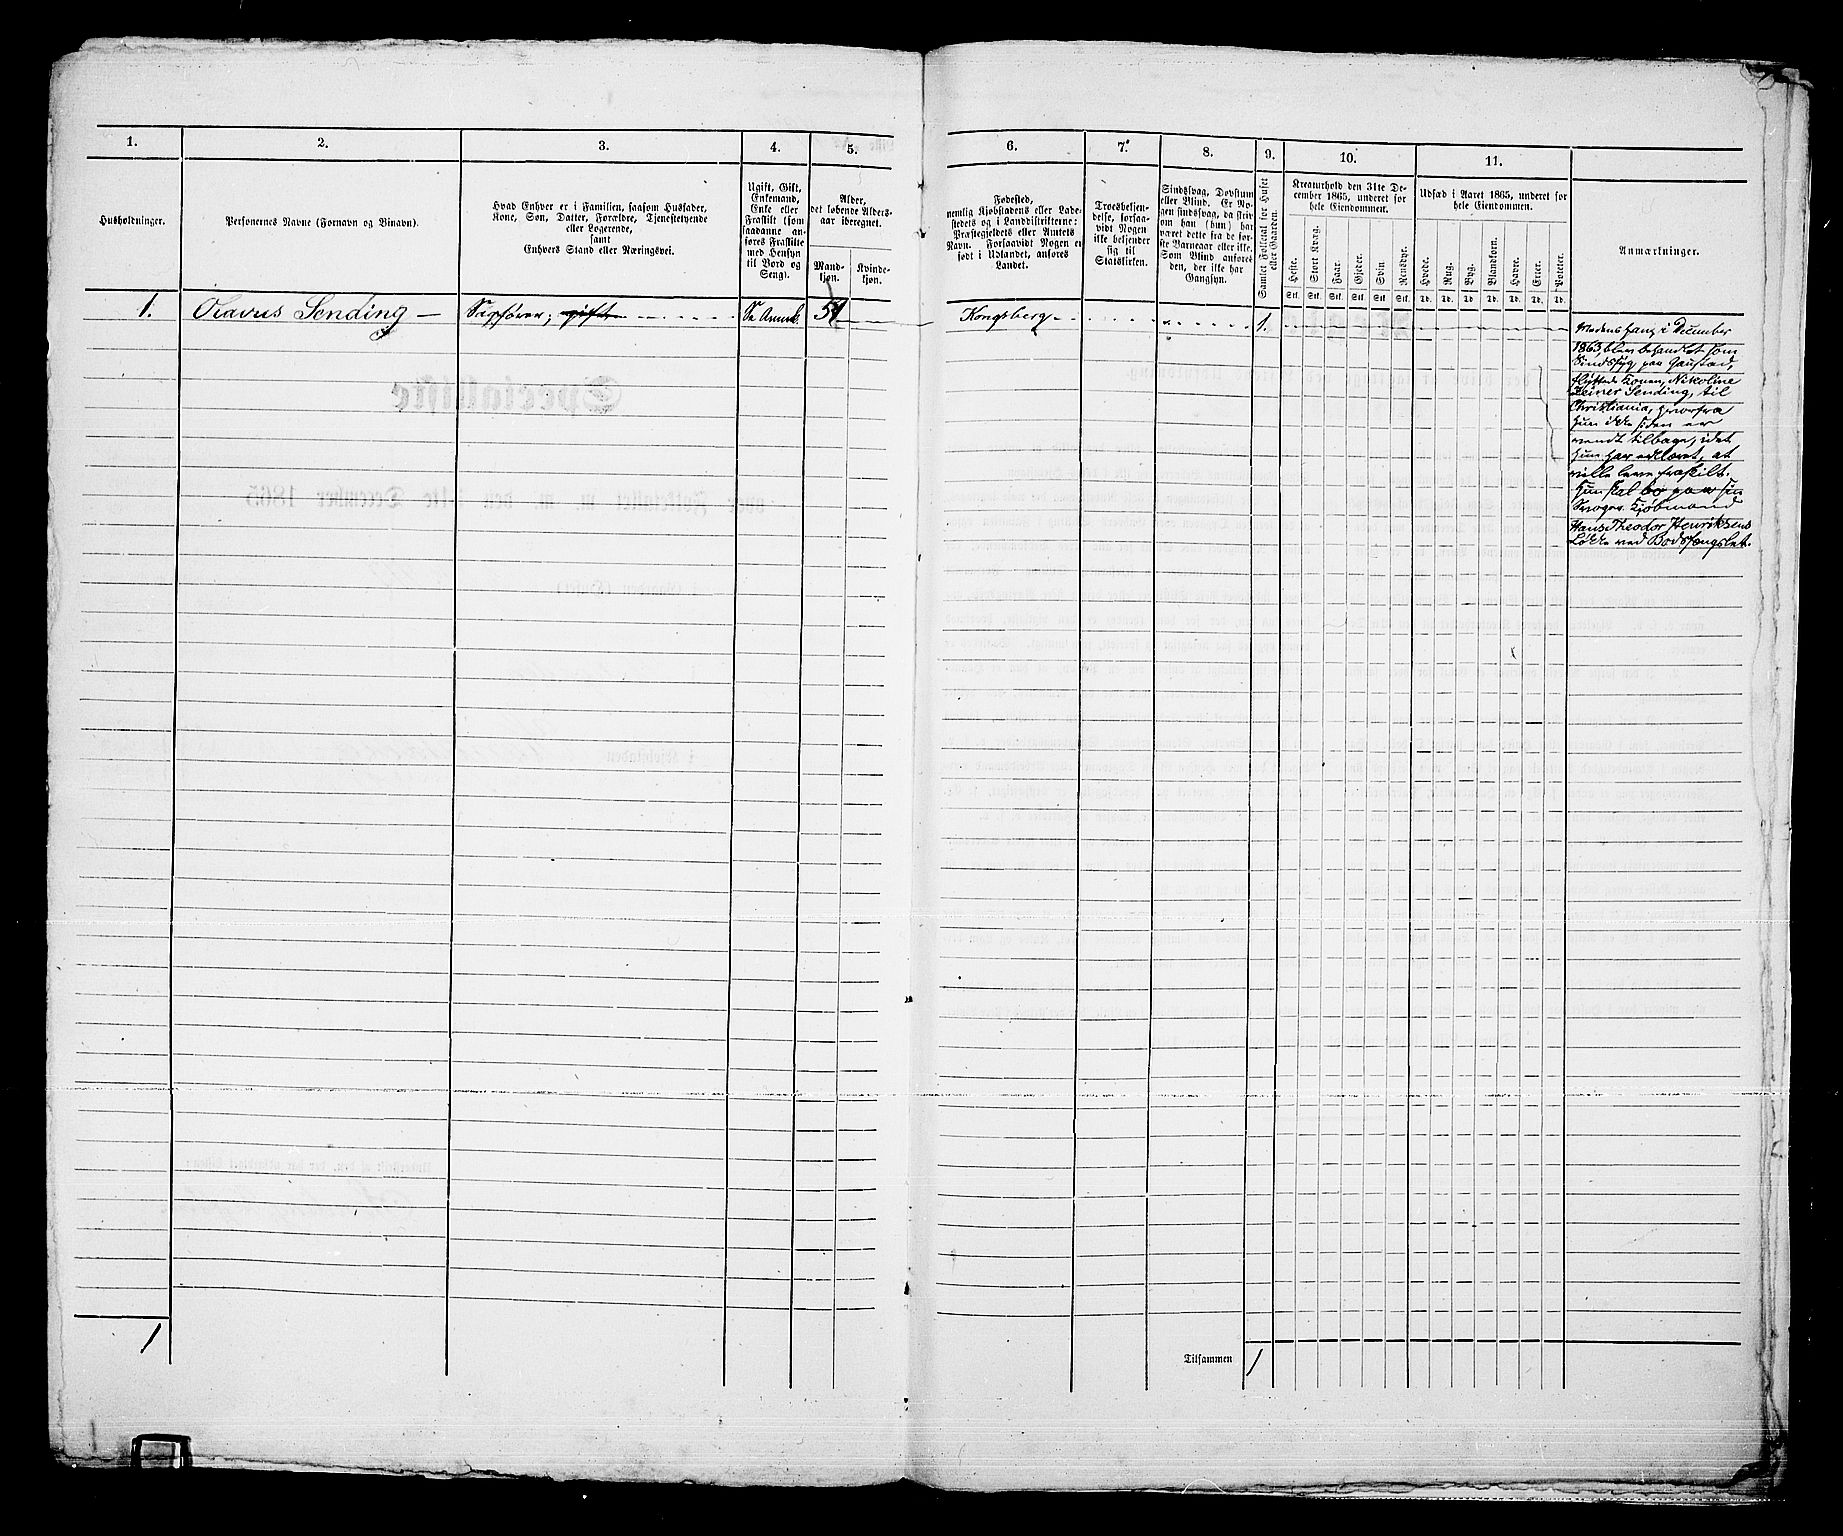 1. 2. 3. 4. 5. 6. 7. 8. 9. 10. 11.
Husholdninger.
Personernes Navne (Fornavn og Binavn).
Hvad Enhver er i Familien, saasom Husfader,
Kone, Søn, Datter, Forældre, Tjenestetyende
eller Logerende,
samt
Enhvers Stand eller Næringsvei.
Ugift, Gift,
Enkemand,
Enke eller
Fraskilt (som
saadanne an-
føres Fraskilte
med Hensyn
til Bord og
Seng).
Alder,
det løbende Alders-
aar iberegnet.
Mand-
kjøn.
Kvinde-
kjøn.
Fødested,
nemlig Kjøbstadens eller Lade-
stedets og i Landdistrikterne:
Præstegjeldets eller Amtets
Navn. Forsaavidt Nogen er
født i Udlandet, anføres
Landet.
Troesbekjen-
delse, forsaa-
vidt Nogen
ikke bekjender
sig til
Statskirken.
Sindssvag, Døvstum
eller Blind. Er No-
gen sindssvag, da skriv
om han (hun) har
været dette fra de før-
ste Barneaar eller ikke.
Som Blind anføres
den, der ikke har
Gangsyn.
Samlet Folketal for Huset
eller Gaarden.
Kreaturhold den 31te De-
cember 1865, underet for
hele Eiendommen.
Heste.
Stort Kvæg.
Faar.
Gjeder.
Svin.
Rensdyr.
Stk. Stk. Stk. Stk. Stk. Stk.
Udsæd i Aaret 1865, underet for
hele Eiendommen.
Hvede.
Rug.
Byg.
Blandkorn.
Havre.
Erter.
Poteter.
Td. Td. Td. Td. Td. Td. Td.
Anmærkninger.
1. Olavus Sending — Sagfører; gift Se Anmk. 51 Kongsberg 1.
Medens han i December
1863 blev behandlet som
Sindssyg paa Gaustad,
flyttede Konen, Nikoline
Sending, til
Christiania, hvorfra
hun ikke siden er
vendt tilbage, idet
hun har erklæret, at
ville leve fraskilt.
Hun skal bo paa sin
Svoger Kjøbmand
Hans Theodor Henriksens
Løkke ved Bodsfængslet.
1
Tilsammen 1